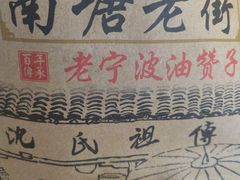 南塘老街
百年传承
老宁波油赞子
沈氏祖傳